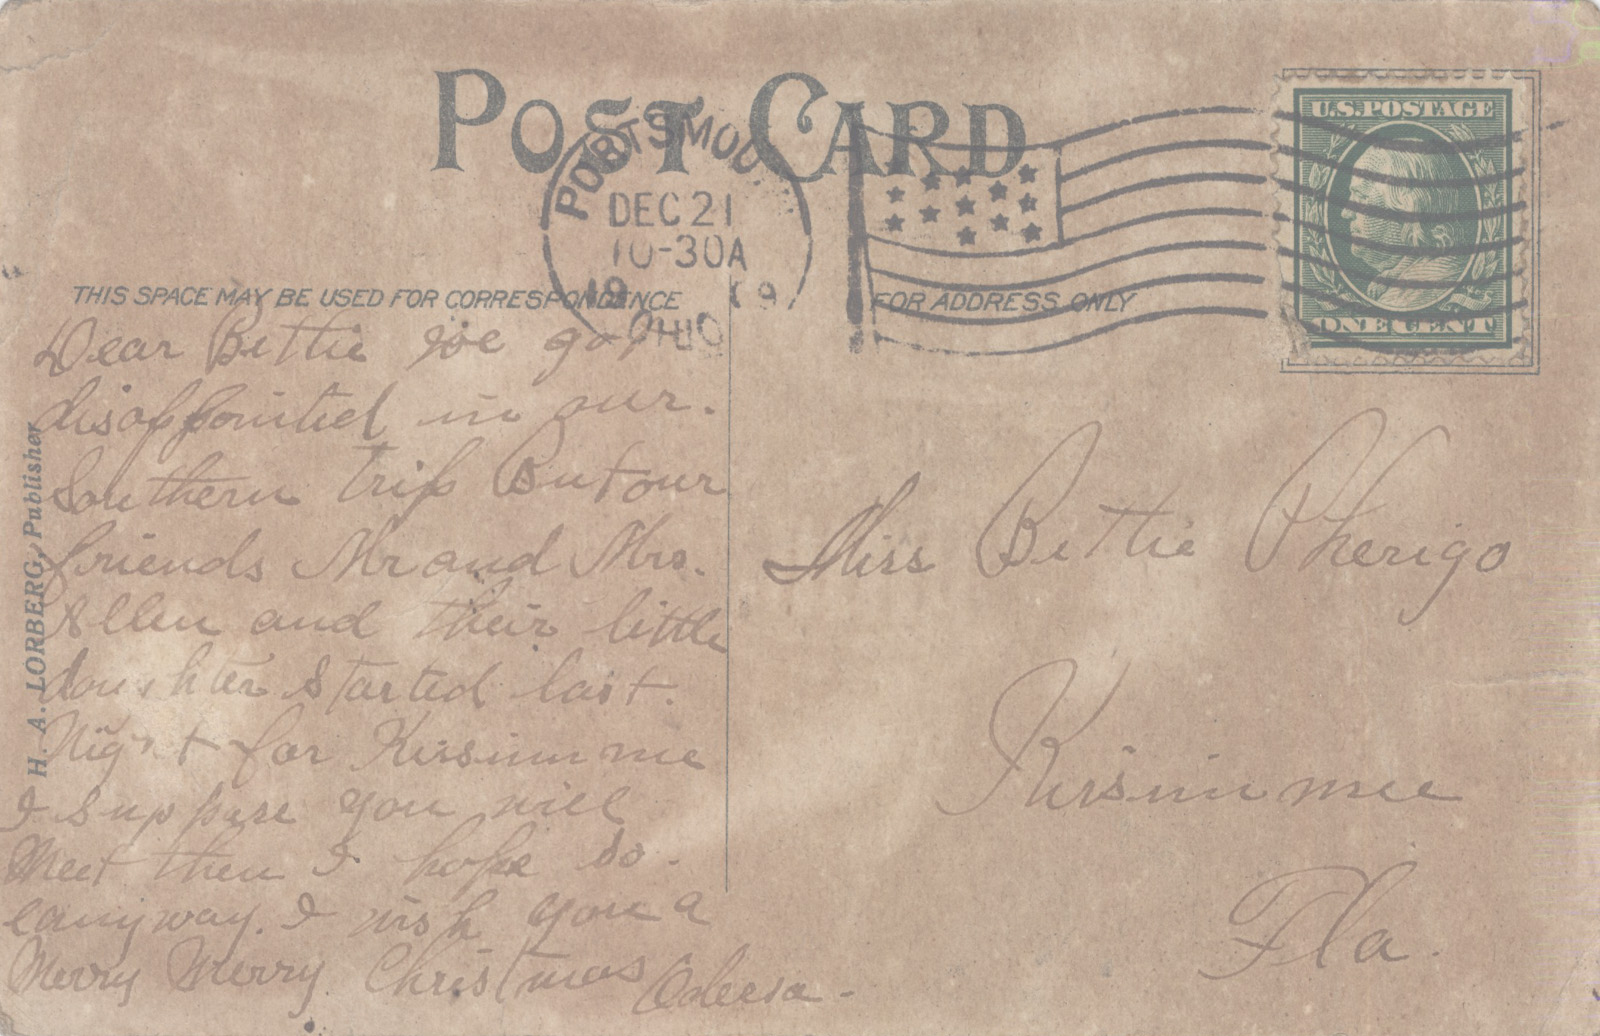 POST CARD
PORTSMOU
DEC 21
10-30A
19 09
OHIO
U.S. POSTAGE
ONE CENT
THIS SPACE MAY BE USED FOR CORRESPONDENCE
FOR ADDRESS ONLY
H. A. LORBERG, Publisher
Dear Bettie we got
disappointed in our.
Southern trip But our
friends Mr and Mrs.
Allen and their little
daughter started last.
Night for Kissimmee
I suppose you will
Meet them I hope so.
anyway. I wish you a
Merry Merry Christmas
Odeesa -
Miss Bettie Pherigo
Kissimmee
Fla.